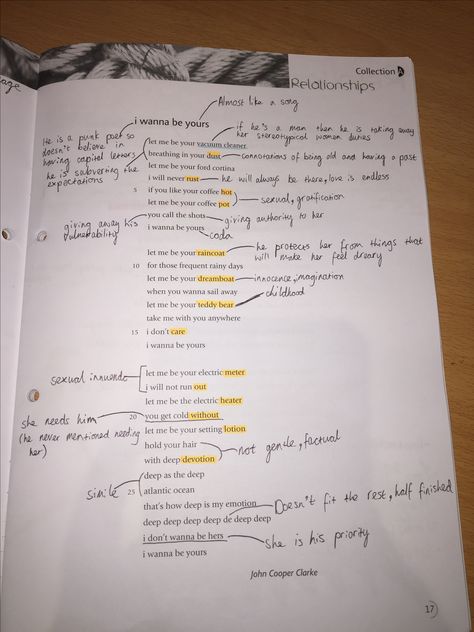 age
Collection A
Relationships
Almost like a song
i wanna be yours
He is a punk poet so
doesn't believe in
having capital letters
he is subverting the
expectations
if he's a man then he is taking away
her stereotypical women duties
let me be your vacuum cleaner
breathing in your dust
connotations of being old and having a past
let me be your ford cortina
i will never rust
he will always be there, love is endless
5 if you like your coffee hot
let me be your coffee pot
sexual, gratification
giving away his
vulnerability
you call the shots
giving authority to her
i wanna be yours
coda
let me be your raincoat
he protects her from things that
will make her feel dreary
10 for those frequent rainy days
let me be your dreamboat
innocence, imagination
when you wanna sail away
let me be your teddy bear
childhood
take me with you anywhere
15 i don't care
i wanna be yours
sexual innuendo
let me be your electric meter
i will not run out
let me be the electric heater
she needs him
(he never mentioned needing
her)
20 you get cold without
let me be your setting lotion
hold your hair
with deep devotion
not gentle, factual
simile
deep as the deep
25 atlantic ocean
that's how deep is my emotion
Doesn't fit the rest, half finished
deep deep deep deep de deep deep
i don't wanna be hers
she is his priority
i wanna be yours
John Cooper Clarke
17